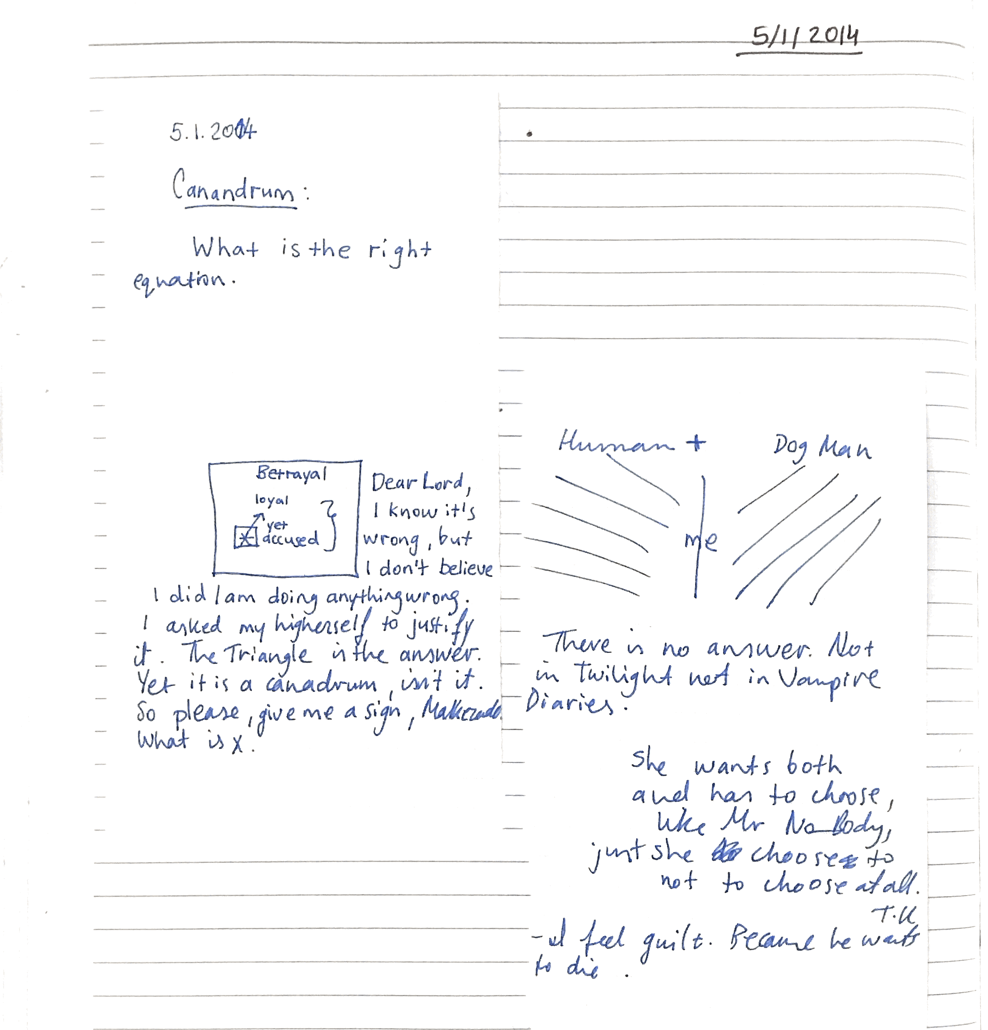 5/1/2014
5.1.2014
Canandrum:
What is the right
equation.
Betrayal
loyal
yet
accused
Dear Lord,
I know it's
wrong, but
I don't believe
I did I am doing anything wrong.
I asked my higherself to justify
it. The Triangle is the answer.
Yet it is a canadrum, isn't it.
So please, give me a sign,
What is x.
Human + Dog Man
me
There is no answer. Not
in Twilight not in Vampire
Diaries.
She wants both
and has to choose,
like Mr No_Body,
just she chooses to
not to choose at all.
T.K
- I feel guilt. Because he wants
to die.